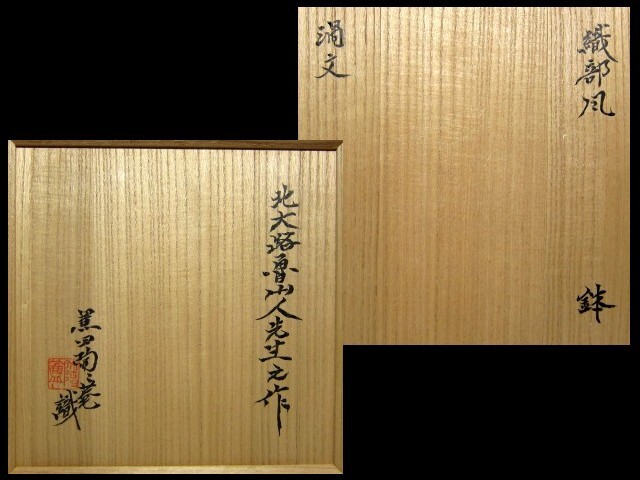 織部風 鉢
渦文
北大路魯山人先生之作
黒田陶々菴 識